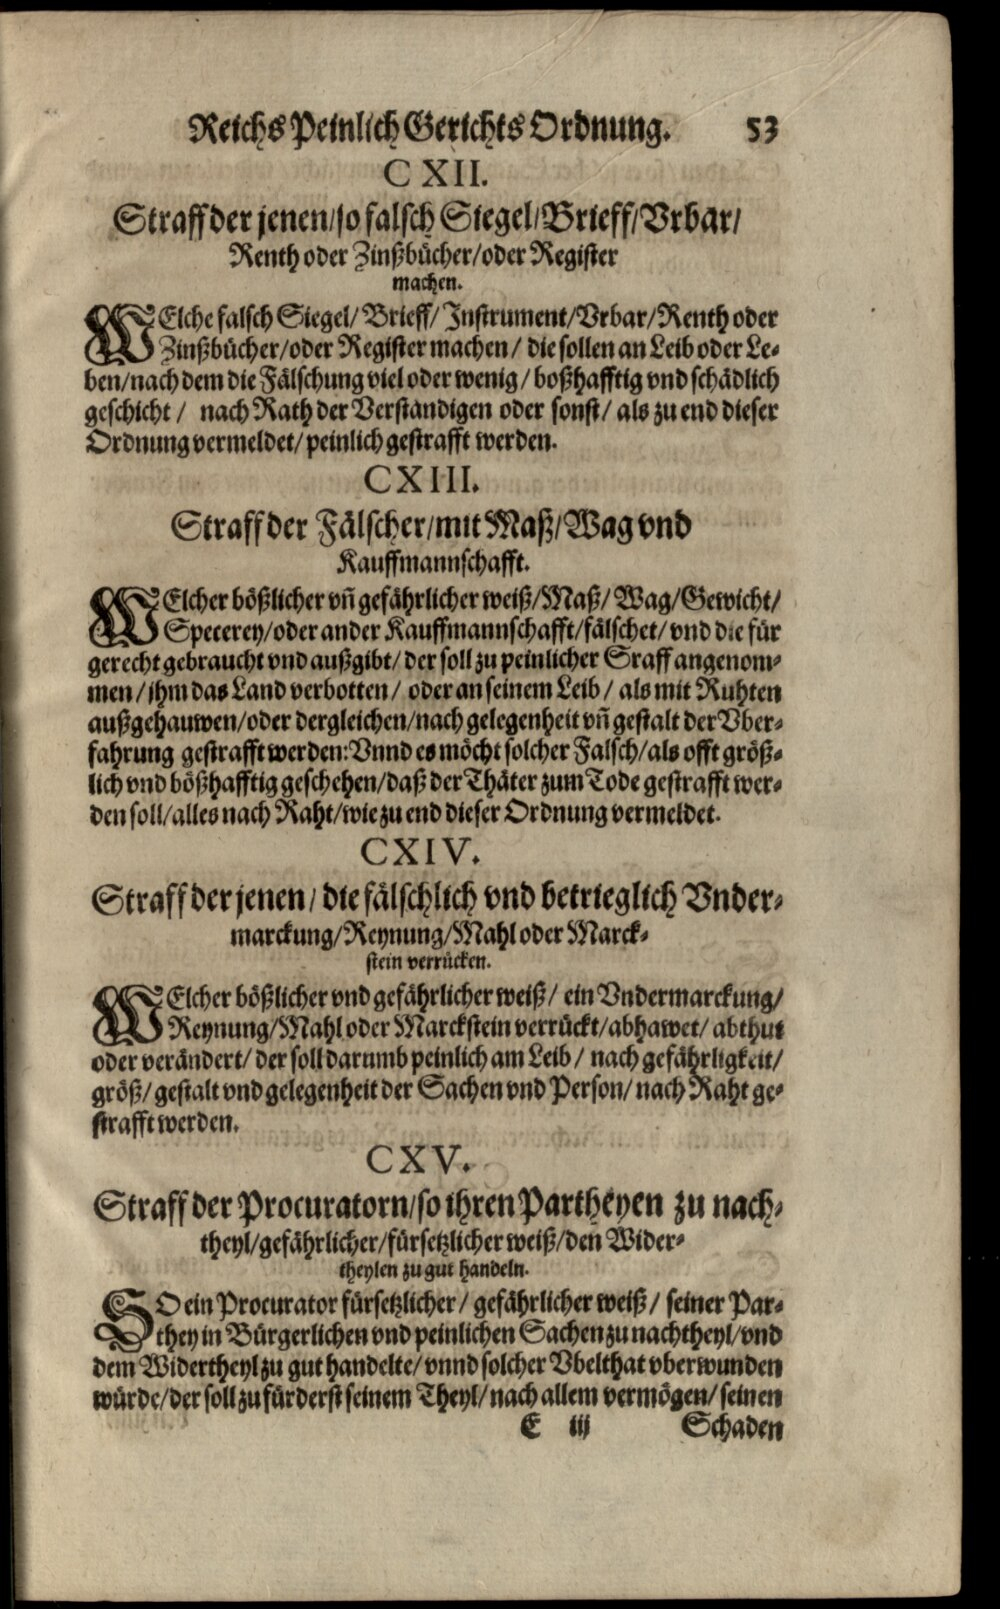 Reichs Peinlich Gerichts Ordnung. 53
CXII.
Straff der jenen/so falsch Siegel/Brieff/Vrbar/
Renth oder Zinßbücher/oder Register
machen.
WElche falsch Siegel/ Brieff/ Instrument/Vrbar/Renth oder
Zinßbücher/oder Register machen/ die sollen an Leib oder Le-
ben/nach dem die Fälschung viel oder wenig/ boßhafftig vnd schädlich
geschicht/ nach Rath der Verständigen oder sonst/ als zu end dieser
Ordnung vermeldet/ peinlich gestrafft werden.
CXIII.
Straff der Fälscher/mit Maß/Wag vnd
Kauffmannschafft.
WElcher bößlicher vñ gefährlicher weiß/Maß/ Wag/Gewicht/
Specerey/oder ander Kauffmannschafft/fälschet/ vnd die für
gerecht gebraucht vnd außgibt/ der soll zu peinlicher Sraff angenom-
men/ihm das Land verbotten/ oder an seinem Leib/ als mit Ruhten
außgehauwen/oder dergleichen/nach gelegenheit vñ gestalt der Vber-
fahrung gestrafft werden: Vnnd es möcht solcher Falsch/als offt größ-
lich vnd bößhafftig geschehen/daß der Thäter zum Tode gestrafft wer-
den soll/alles nach Raht/wie zu end dieser Ordnung vermeldet.
CXIV.
Straff der jenen/ die fälschlich vnd betrieglich Vnder-
marckung/Reynung/Mahl oder Marck-
stein verrücken.
WElcher bößlicher vnd gefährlicher weiß/ ein Vndermarckung/
Reynung/Mahl oder Marckstein verrückt/abhawet/ abthut
oder verändert/ der soll darumb peinlich am Leib/ nach gefährligkeit/
größ/ gestalt vnd gelegenheit der Sachen vnd Person/ nach Raht ge-
strafft werden.
CXV.
Straff der Procuratorn/so ihren Partheyen zu nach-
theyl/gefährlicher/fürsetzlicher weiß/den Wider-
theylen zu gut handeln.
SO ein Procurator fürsetzlicher/ gefährlicher weiß/ seiner Par-
they in Bürgerlichen vnd peinlichen Sachen zu nachtheyl/vnd
dem Widertheyl zu gut handelte/ vnnd solcher Vbelthat vberwunden
würde/der soll zu fürderst seinem Theyl/ nach allem vermögen/ seinen
E iij Schaden